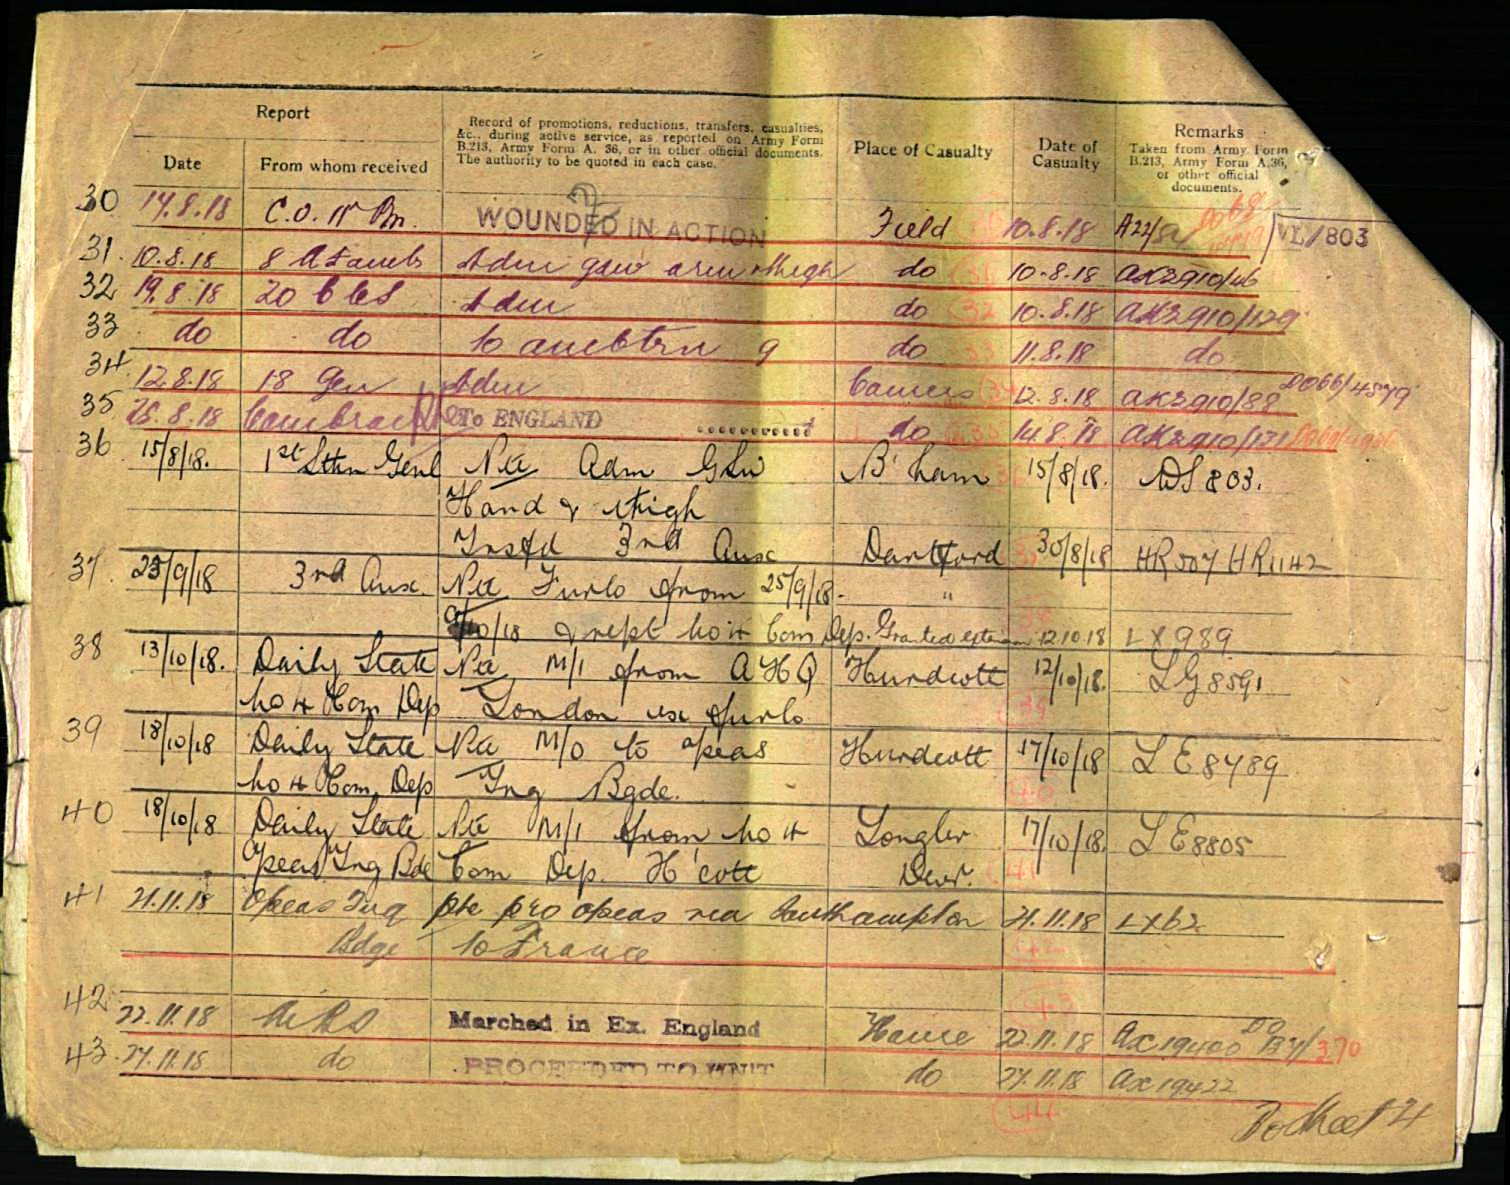 Report
Record of promotions, reductions, transfers, casualties,
&c., during active service, as reported on Army Form
B.213, Army Form A. 36, or in other official documents.
The authority to be quoted in each case.
Place of Casualty
Date of
Casualty
Remarks
Taken from Army Form
B.213, Army Form A.36,
or other official
documents.
Date
From whom received
30 14.8.18 C.O. WOUNDED IN ACTION Field 10.8.18 A22/
VL/803
31. 10.8.18 8 A F amb Adm gsw arm thigh do 10.8.18 AK2910/46
32 19.8.18 20 CCS Adm do 10.8.18 AK2910/129
33 do do to ambtrn 9 do 11.8.18 do
34 12.8.18 18 Gen Adm Camiers 12.8.18 AK2910/88 DO66/4579
35 25.8.18 To ENGLAND do 14.8.18 AK2910/121
36 15/8/18. 1st Sthn Genl Pte Adm GSW B'ham 15/8/18. DS 803.
Hand & thigh
Trsfd 3rd Aux Dartford 30/8/18 HR507 HR1142
37. 25/9/18 3rd Aux. Pte Furlo from 25/9/18. "
9/10/18 & rept No 4 Com Dep. Granted exten 12.10.18 LX989
38 13/10/18. Daily State Pte M/I from AHQ Hurdcott 12/10/18. LG8591
No 4 Com Dep London ex furlo
39 18/10/18 Daily State Pte M/O to O'seas Hurdcott 17/10/18 LE8789
No 4 Com. Dep Tng Bgde.
40 18/10/18 Daily State Pte M/I from No 4 Longbr 17/10/18. LE8805
O'seas Tng Bde Com Dep. H'cott Devr.
41 21.11.18 O'seas Trg Pte pro o'seas via Southampton 21.11.18 LX62
Bdge to France
42 22.11.18 Marched in Ex. England Havre 22.11.18 AX19400 DO B41/370
43. 27.11.18 do PROCEEDED TO UNIT do 27.11.18 AX19422
To Sheet 4